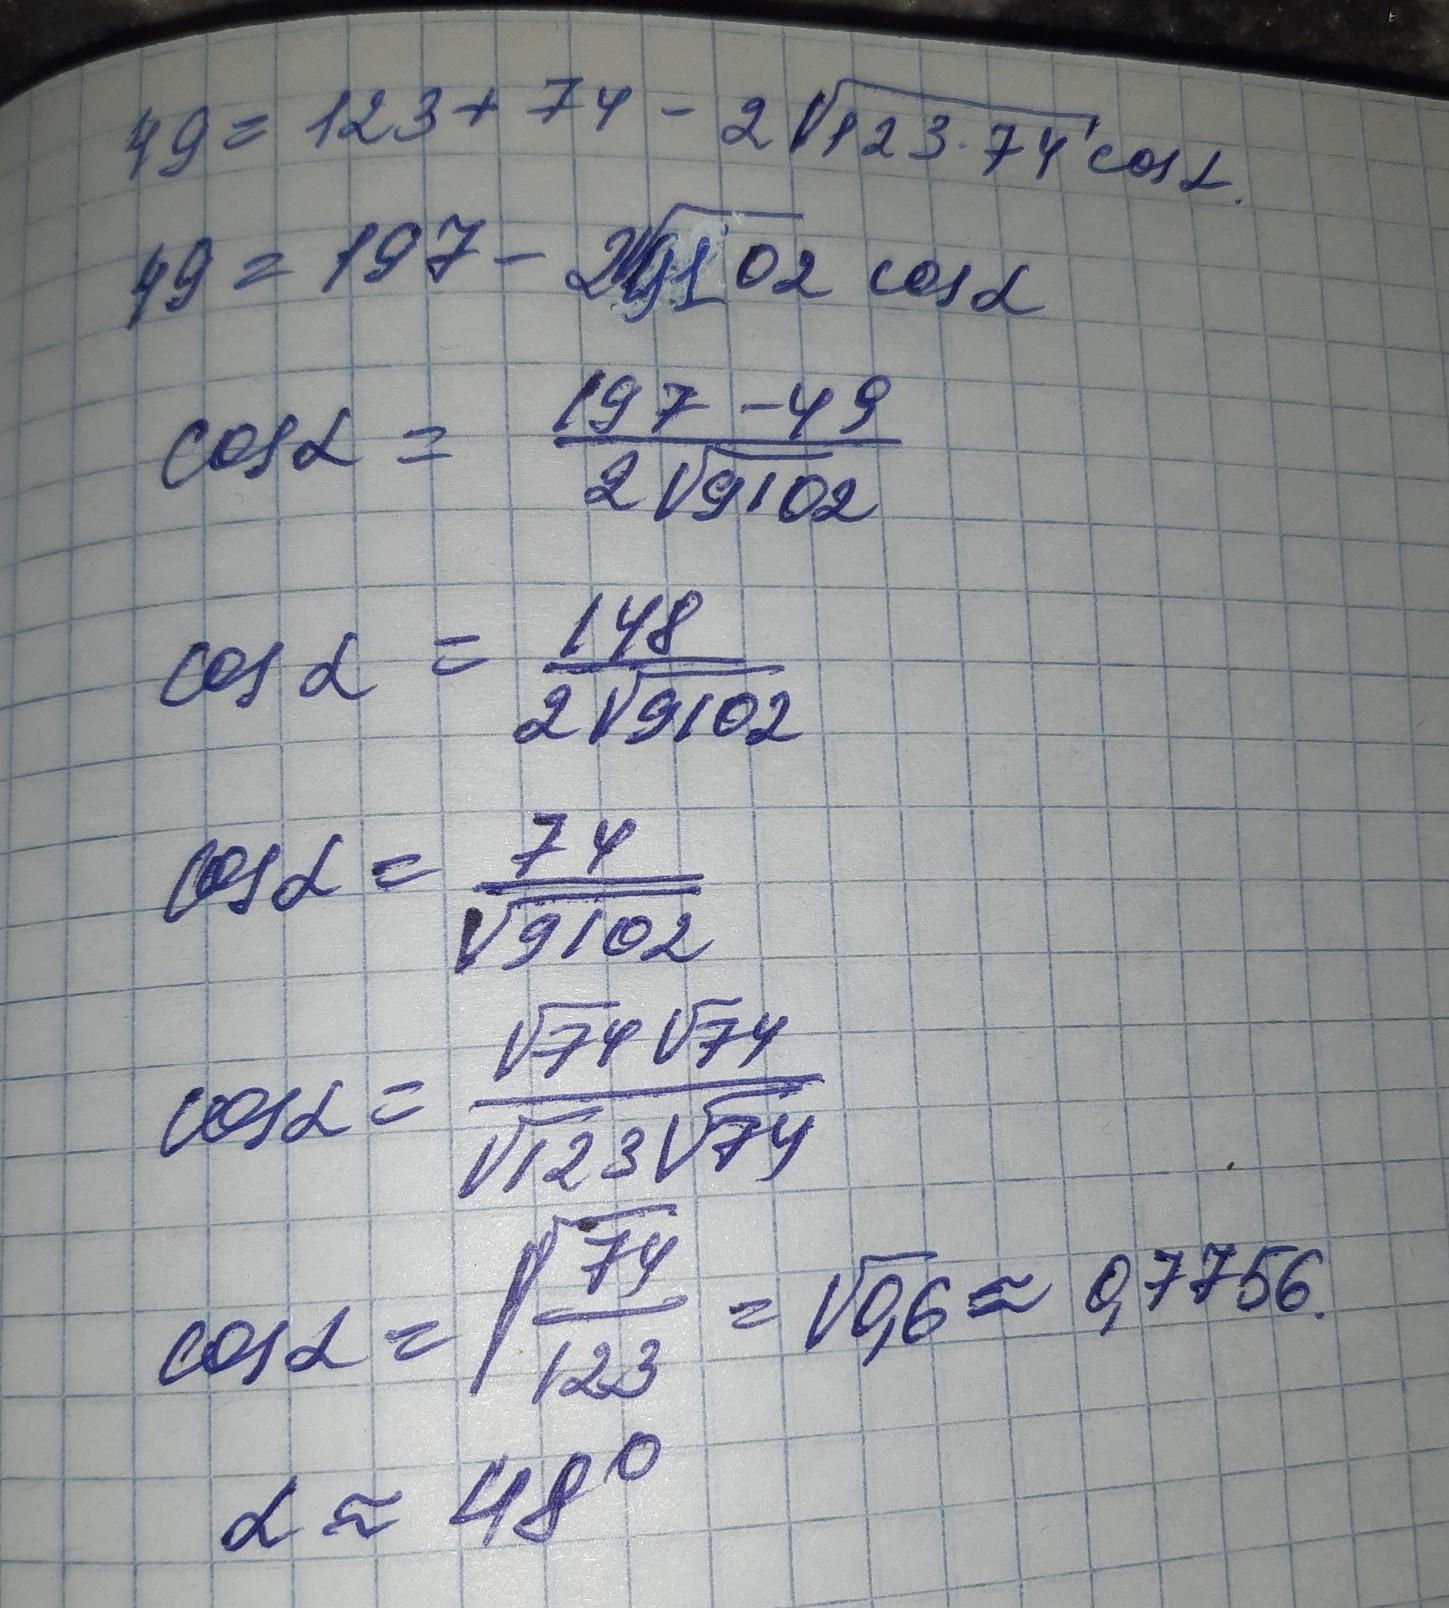 49 = 123 + 74 - 2√123·74 cos α.
49 = 197 - 2√9102 cos α
cos α = (197 - 49)/(2√9102)
cos α = 148/(2√9102)
cos α = 74/√9102
cos α = (√74 √74)/(√123 √74)
cos α = √(74/123) = √0,6 ≈ 0,7756.
α ≈ 48°